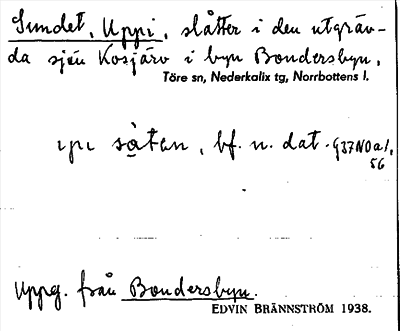 Sundet, Uppi, slåtter i den utgräv-
da sjön Kosjärv i byn Bondersbyn,
Töre sn, Nederkalix tg, Norrbottens l.
bf. n. dat. G37N0a1,
56
Uppg. från Bondersbyn.
EDVIN BRÄNNSTRÖM 1938.